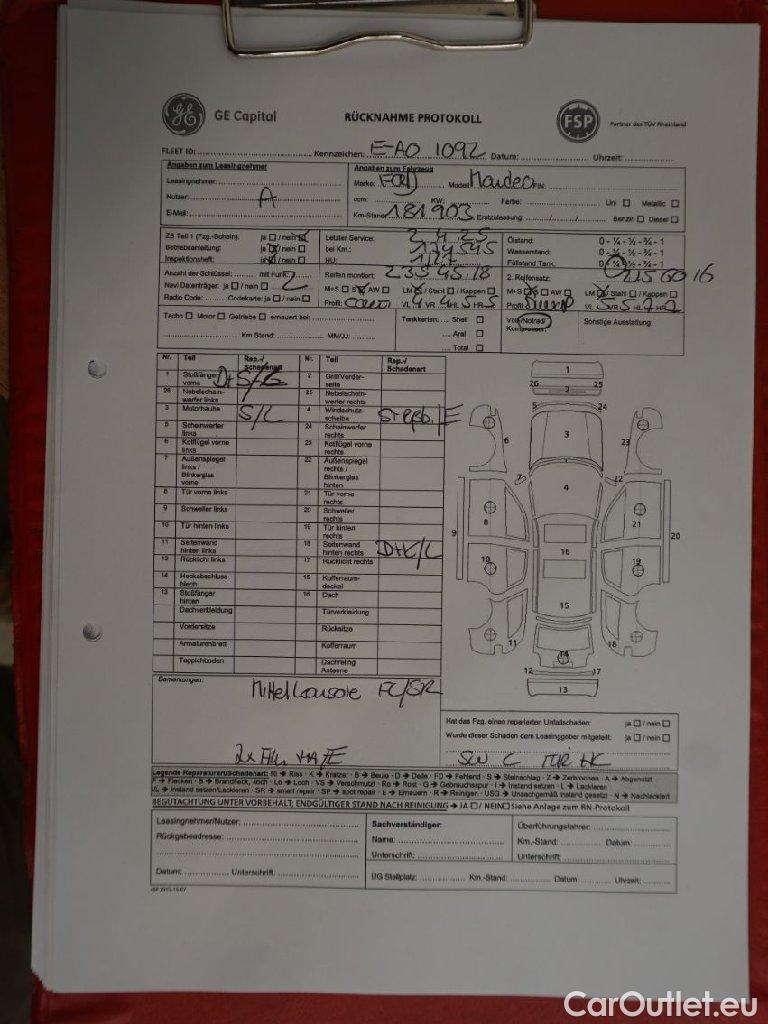 GE GE Capital RÜCKNAHME PROTOKOLL FSP Partner des TÜV Rheinland
FLEET ID: Kennzeichen: E-AO 1092 Datum: Uhrzeit:
Angaben zum Leasingnehmer
Leasingnehmer:
Nutzer: A
E-Mail:
Angaben zum Fahrzeug
Marke: FORD Modell: Mondeo FIN:
ccm: KW: Farbe: Uni □ Metallic □
Km-Stand: 181903 Erstzulassung / / Benzin □ Diesel □
ZB Teil 1 (Fzg.-Schein): ja □ / nein □
Betriebsanleitung: ja □ / nein □
Inspektionsheft: ja □ / nein □
Letzter Service:
bei Km.:
HU:
Ölstand: 0 - ¼ - ½ - ¾ - 1
Wasserstand: 0 - ¼ - ½ - ¾ - 1
Füllstand Tank: 0 - ¼ - ½ - ¾ - 1
Anzahl der Schlüssel: mit Funk: 2
Navi Datenträger: ja □ / nein □
Radio Code: Codekarte: ja □ / nein □
Reifen montiert: 235 45 18
M+S □ S □ AW □ LM □ / Stahl □ / Kappen □
Profil: VL 4 VR 4 HL 5 HR 5
2. Reifensatz: 215 60 16
M+S □ S □ AW □ LM □ Stahl □ / Kappen □
Tacho □ Motor □ Getriebe □ erneuert bei:
Km Stand: MM/JJ:
Tankkarten: Shell □
Aral □
Total □
Sonstige Ausstattung:
Nr. Teil Rep.-/ Schadenart Nr. Teil Rep.-/ Schadenart
1 Stoßfänger vorne 2 Grill/Vorderseite
26 Nebelscheinwerfer links 25 Nebelscheinwerfer rechts
3 Motorhaube S/L 4 Windschutzscheibe
5 Scheinwerfer links 24 Scheinwerfer rechts
6 Kotflügel vorne links 23 Kotflügel vorne rechts
7 Außenspiegel links / Blinkerglas vorne 22 Außenspiegel rechts / Blinkerglas hinten
8 Tür vorne links 21 Tür vorne rechts
9 Schweller links 20 Schweller rechts
10 Tür hinten links 19 Tür hinten rechts
11 Seitenwand hinten links 18 Seitenwand hinten rechts D+K/L
12 Rücklicht links 17 Rücklicht rechts
14 Heckabschlussblech 15 Kofferraumdeckel
13 Stoßfänger hinten 16 Dach
Dachverkleidung Türverkleidung
Vordersitze Rücksitze
Armaturenbrett Kofferraum
Teppichboden Dachreling Antenne
1
26 25
2
5 24
6 3 23
7 22
4
8 21
9 20
16
10 19
15
11 18
14
12 17
13
Bemerkungen: Mittelkonsole
Hat das Fzg. einen reparierten Unfallschaden: ja □ / nein □
Wurde dieser Schaden dem Leasinggeber mitgeteilt: ja □ / nein □
Legende Reparaturart/Schadenart: Ri → Riss - K → Kratzer - B → Beule - D → Delle - FD → Fehlend - S → Steinschlag - Z → Zerbrochen - A → Abgenutzt
F → Flecken - B → Brandfleck, -loch - Lo → Loch - VS → Verschmutzt - Ro → Rost - G → Gebrauchsspur - I → Instand setzen - L → Lackieren
I/L → Instand setzen/Lackieren - SR → smart repair - SP → spot repair - E → Erneuern - R → Reinigen - USG → Unsachgemäß instand gesetzt - N → Nachlackiert
BEGUTACHTUNG UNTER VORBEHALT; ENDGÜLTIGER STAND NACH REINIGUNG → JA □ / NEIN □ Siehe Anlage zum RN-Protokoll
Leasingnehmer/Nutzer:
Rückgabeadresse:
Datum: Unterschrift:
Sachverständiger:
Name:
Unterschrift:
Überführungsfahrer:
Km.-Stand: Datum:
Unterschrift:
ÜG Stellplatz: Km.-Stand: Datum: Uhrzeit:
CarOutlet.eu